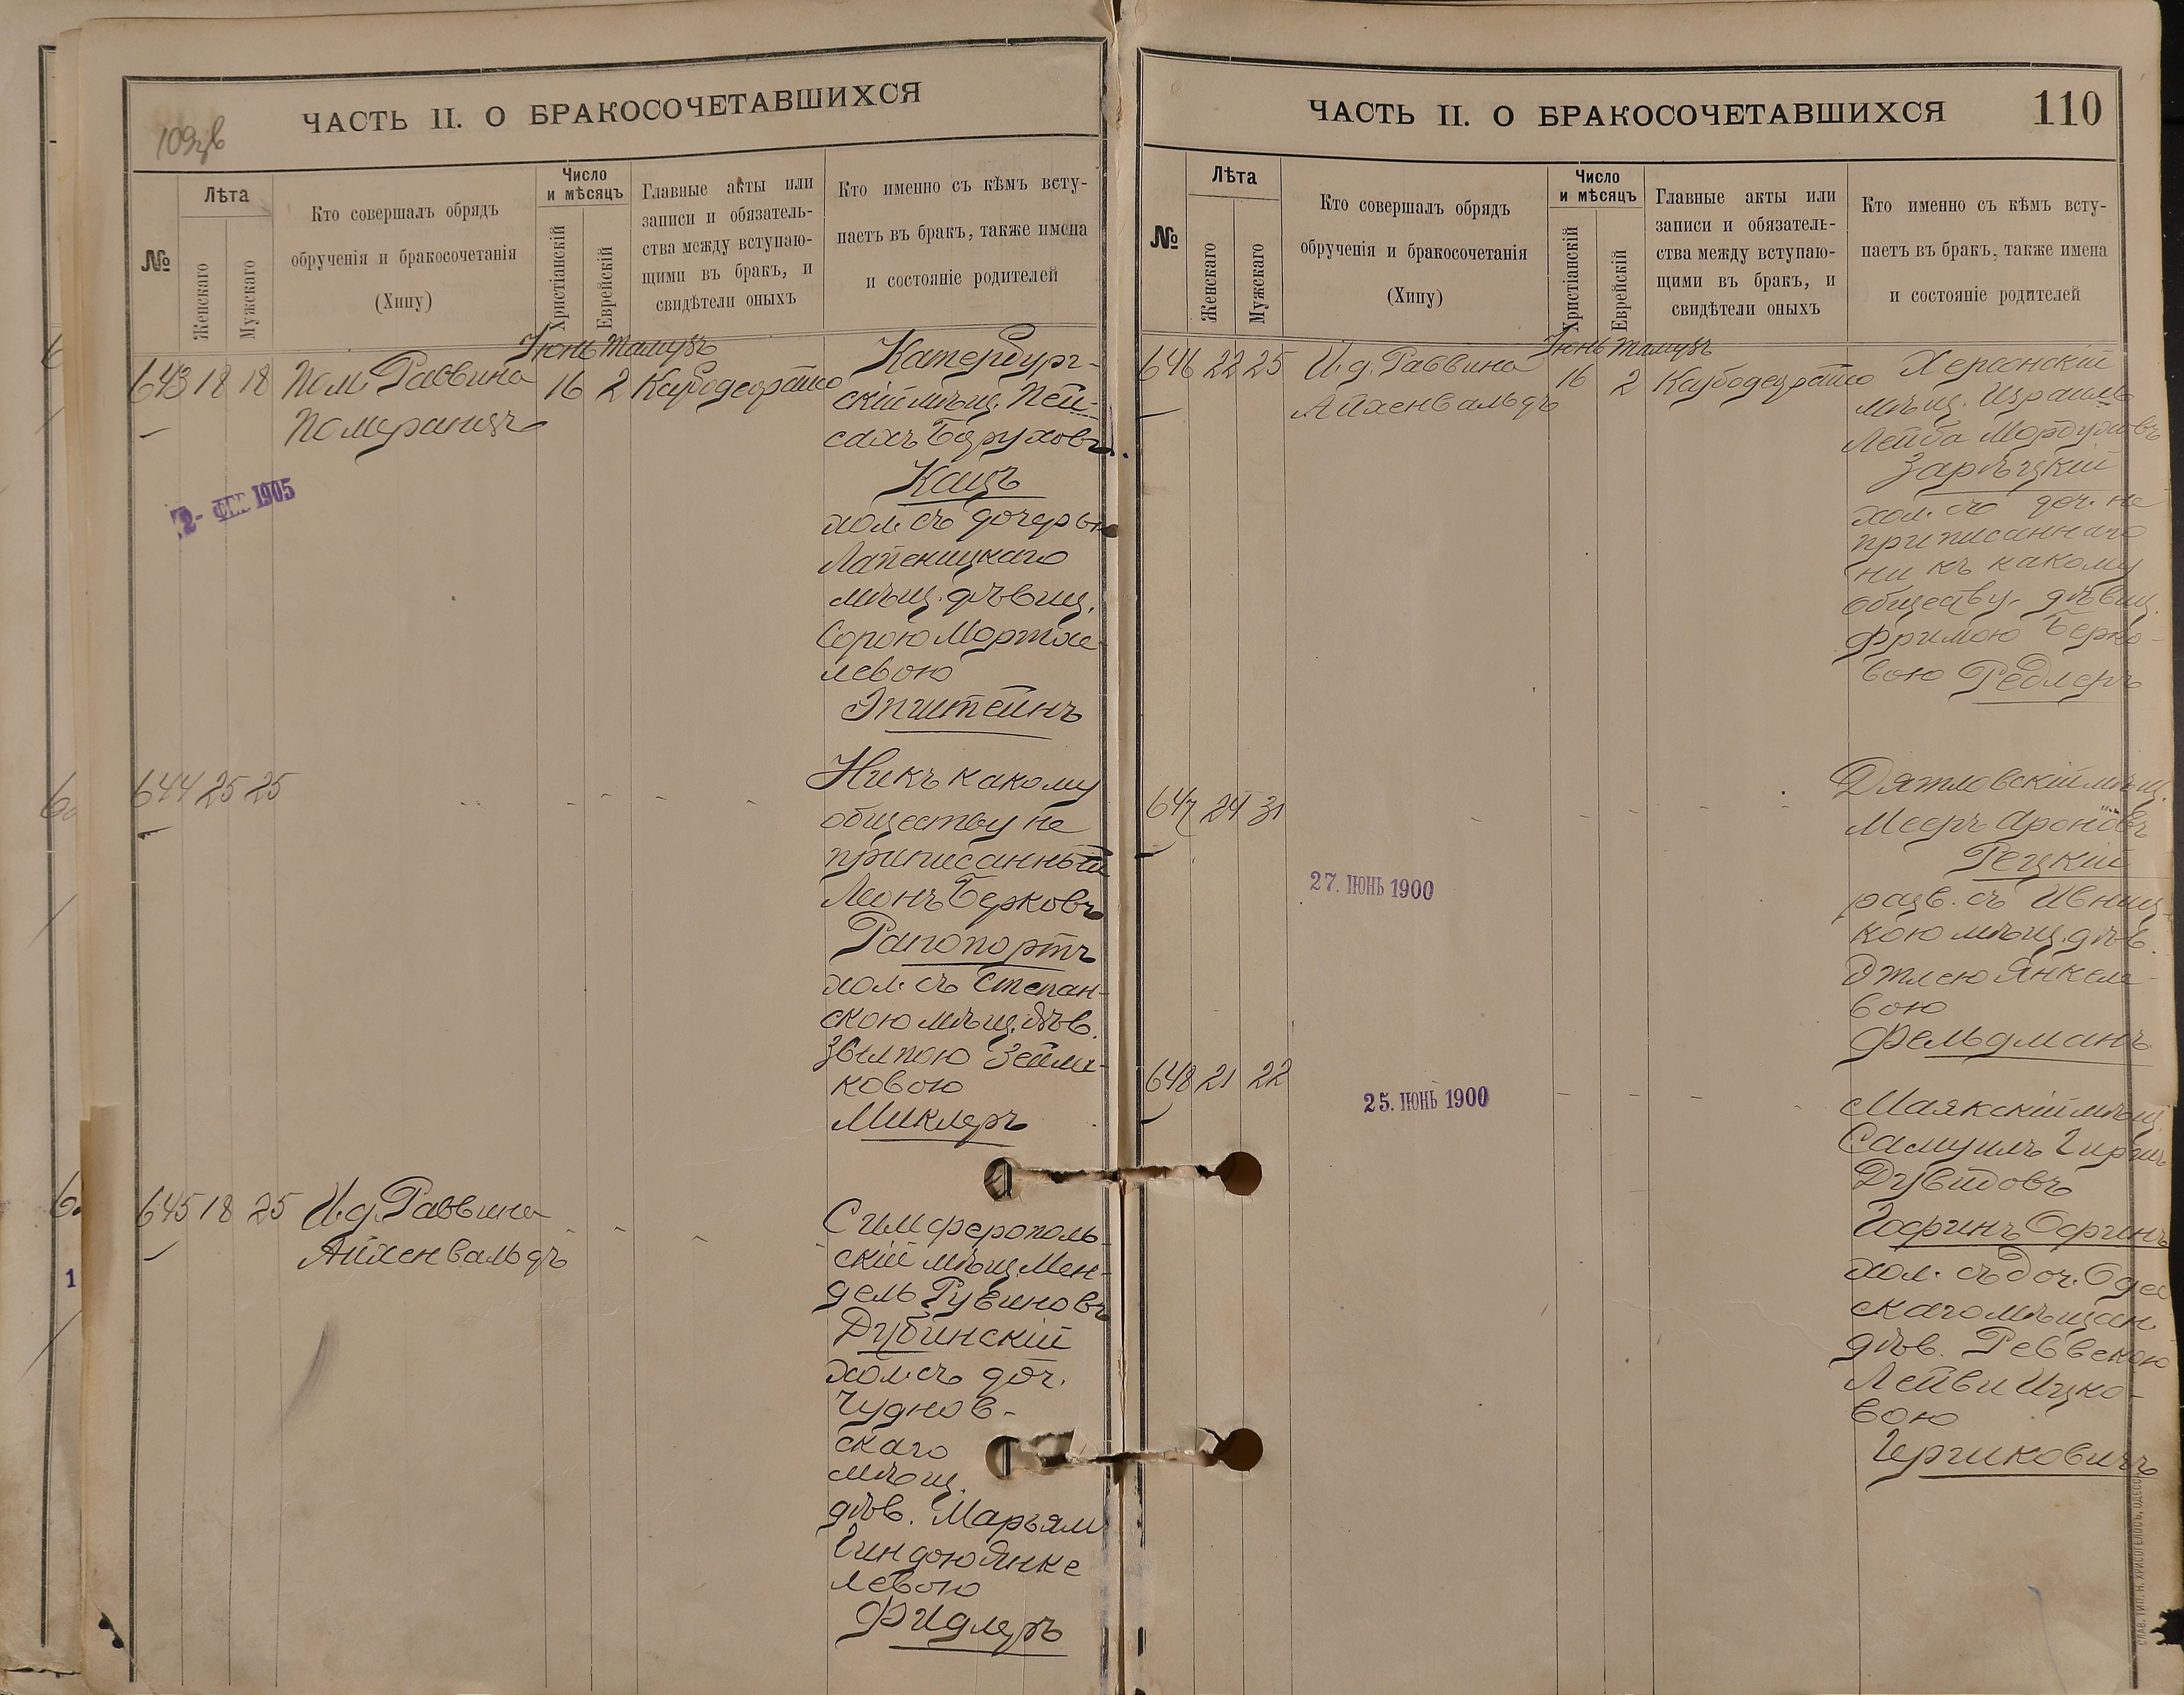 109 об
ЧАСТЬ II. О БРАКОСОЧЕТАВШИХСЯ
№
Лѣта
Женскаго
Мужскаго
Кто совершалъ обрядъ
обрученія и бракосочетанія
(Хипу)
Число
и мѣсяцъ
Христіанскій
Еврейскій
Главные акты или
записи и обязатель-
ства между вступаю-
щими въ бракъ, и
свидѣтели оныхъ
Кто именно съ кѣмъ всту-
паетъ въ бракъ, также имена
и состояніе родителей
Іюнь Тамузъ
643 18 18 Пом. Раввина 16 2
Померанцъ
2- ФЕВ 1905
Катербург-
скій мѣщ. Пей-
сахъ Беруховъ
Кацъ
хол. съ дочерью
Лапеницкаго
мѣщ. дѣвиц.
Сорою Мортхе-
левою
Эпштейнъ
644 25 25
Никъ какому
обществу не
приписанный
Леонъ Берковъ
Рапопортъ
хол. съ Степан-
скою мѣщ. дѣв.
Зейли-
ковою
Миклеръ
645 18 25 И.д. Раввина
Айхенвальдъ
Симферополь-
скій мѣщ. Мен-
дель Рувиновъ
Дубинскій
хол. съ доч.
Чуднов-
скаго
мѣщ.
дѣв. Марьям
Гиндою Янке
левою
Фидлеръ
ЧАСТЬ II. О БРАКОСОЧЕТАВШИХСЯ
110
№
Лѣта
Женскаго
Мужскаго
Кто совершалъ обрядъ
обрученія и бракосочетанія
(Хипу)
Число
и мѣсяцъ
Христіанскій
Еврейскій
Главные акты или
записи и обязатель-
ства между вступаю-
щими въ бракъ, и
свидѣтели оныхъ
Кто именно съ кѣмъ всту-
паетъ въ бракъ, также имена
и состояніе родителей
Іюнь Тамузъ
646 22 25 И.д. Раввина 16 2
Айхенвальдъ
Херсонскій
мѣщ. Израиль
Лейба Мордуховъ
Зарѣцкій
хол. съ доч. не
приписаннаго
ни къ какому
обществу, дѣвиц.
Фримою Берко-
вою Редлеръ
647 24 31
27. ІЮНЬ 1900
Дятловскій мѣщ.
Мееръ Ароновъ
Рецкій
разв. съ Ивниц-
кою мѣщ. дѣв.
Этлею Янкеле-
вою
Фельдманъ
648 21 22
25. ІЮНЬ 1900
Маякскій мѣщ.
Самуилъ Гиршъ
Дувидовъ
Гофринъ Офринъ
хол. съ доч. Одес
скаго мѣщан.
дѣв. Реввекою
Лейви Ицко-
вою
Гершковичъ
СЛАВ. ТИП. Н. ХРИСОГЕЛОСЪ, ОДЕССА